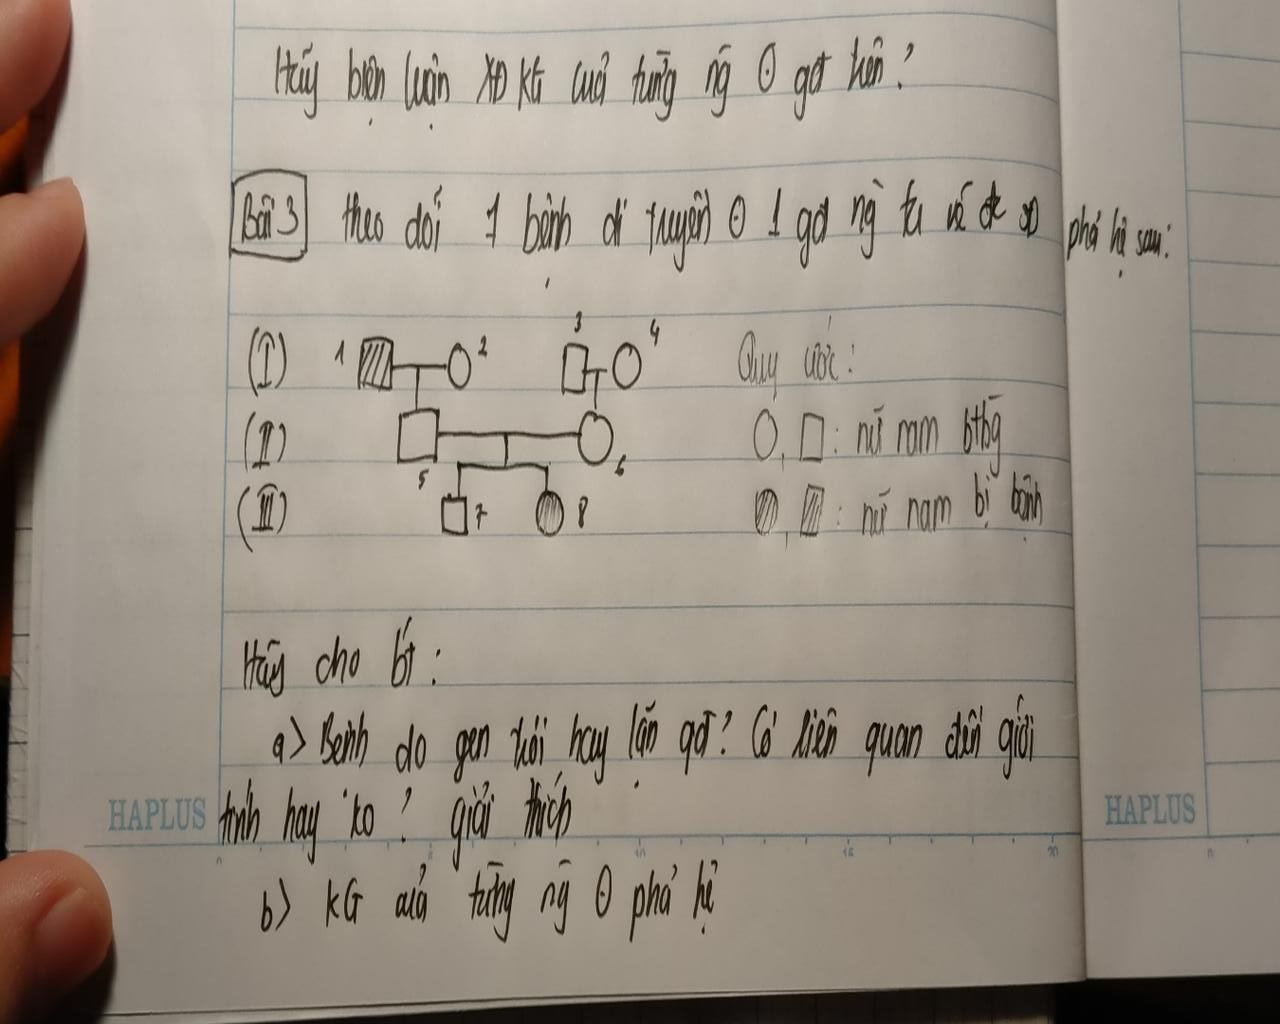 Hãy biện luận XĐ KG của từng ng̃ θ gđ trên?
Bài 3 theo dõi 1 bệnh di truyền θ 1 gđ ng̀ ta vẽ đc sơ phả hệ sau:
(I) 1 2 3 4 Quy ước:
(II) 5 6 O, □: nữ nam bthg̀
(III) 7 8 : nữ nam bị bệnh
Hãy cho bt́:
a> Bệnh do gen trội hay lặn qđ? Có liên quan đến giới
tính hay ko? giải thích
HAPLUS HAPLUS
0 5 10 15 20 0
b> KG của từng ng̃ θ phả hệ